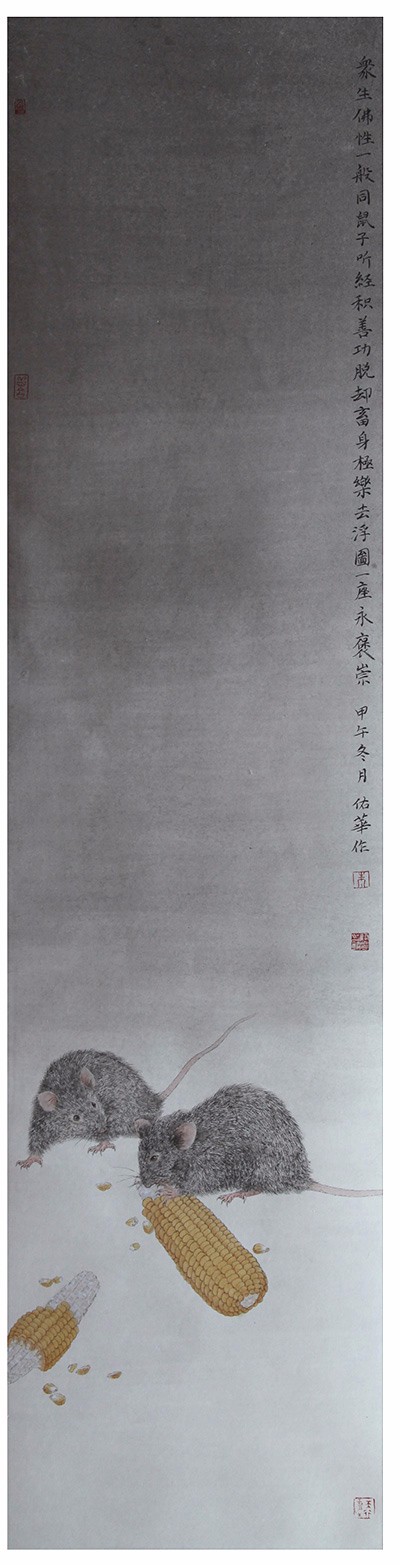 衆生佛性一般同鼠子听經积善功脫却畜身極樂去浮圖一座永褒崇 甲午冬月 佑華作